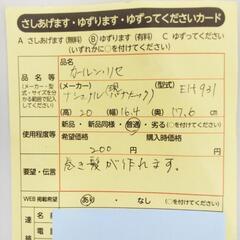 さしあげます・ゆずります・ゆずってくださいカード
A さしあげます（無料） B ゆずります（有料） C ゆずってください
（いずれかに○を付けてください）
品名等
（メーカー・型式・サイズを分かる範囲で記入してください）
（品名）
カールン・リセ
（メーカー） （型式）
ナショナル（現パナソニック） EH931
（高） 20 （幅） 16.4 （奥行） 17.6 cm
使用程度等
新品・新品同様・普通・劣る（○を付けてください）
希望価格 購入時価格
200 円 円
要望・伝言
巻き髪が作れます。
WEB掲載希望
あり・なし（○を付けてください）
連